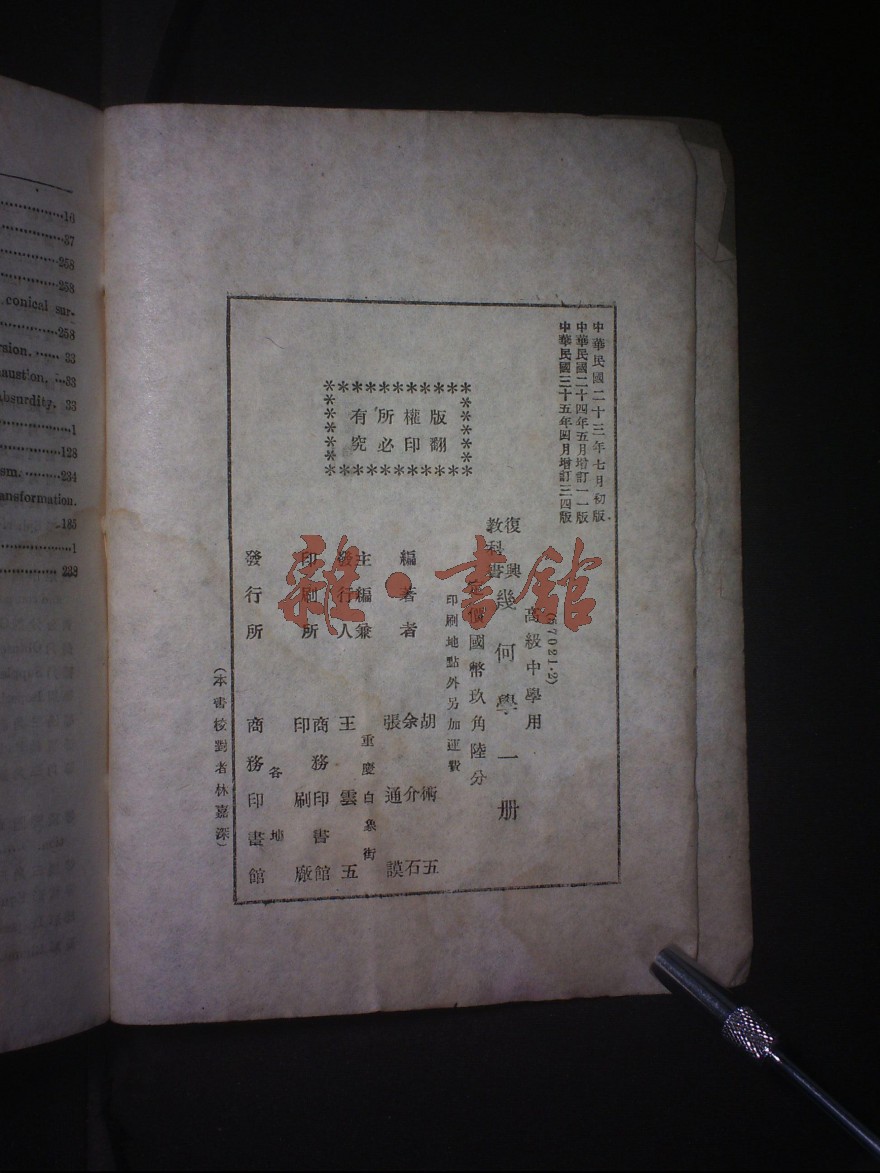 中華民國二十三年七月初版
中華民國二十四年五月增訂一一版
中華民國三十五年四月增訂三四版
版權所有
翻印必究
(57021·2)
高級中學用
復興
教科書
幾何學一册
定價國幣玖角陸分
印刷地點外另加運費
編著者
胡術五
余介石
張通謨
主編兼
發行人
重慶白象街
王雲五
印刷所
商務印書館
印刷廠
發行所
各地
商務印書館
(本書校對者林嘉深)
雜·書館
16
37
258
258
conical sur-
258
33
33
33
1
128
234
ansformation.
185
1
238